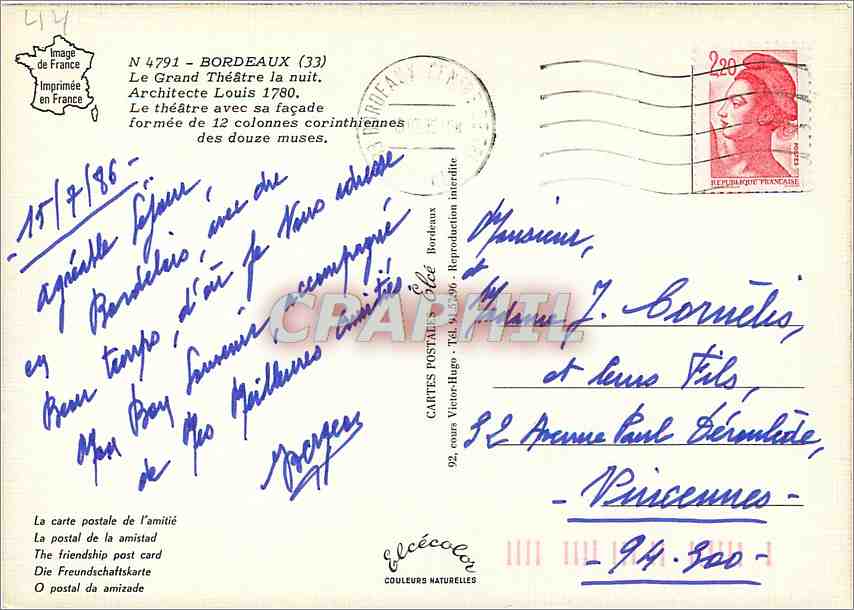 44
Image
de France
Imprimée
en France
N 4791 - BORDEAUX (33)
Le Grand Théâtre la nuit.
Architecte Louis 1780.
Le théâtre avec sa façade
formée de 12 colonnes corinthiennes
des douze muses.
2,20
POSTES
REPUBLIQUE FRANÇAISE
- 15/7/86 -
agréable Séjour
en Bordelais, avec du
Beau temps, d'où je Vous adresse
Mon Bon Souvenir, accompagné
de Mes Meilleures amitiés
CARTES POSTALES Elcé Bordeaux
92, cours Victor-Hugo - Tél. 91.57.96 - Reproduction interdite
CPAPHIL
Monsieur,
et
Madame J. Cornélis,
et leurs Fils,
32 Avenue Paul Déroulède,
- Vincennes -
- 94.300 -
La carte postale de l'amitié
La postal de la amistad
The friendship post card
Die Freundschaftskarte
O postal da amizade
Elcécolor
COULEURS NATURELLES